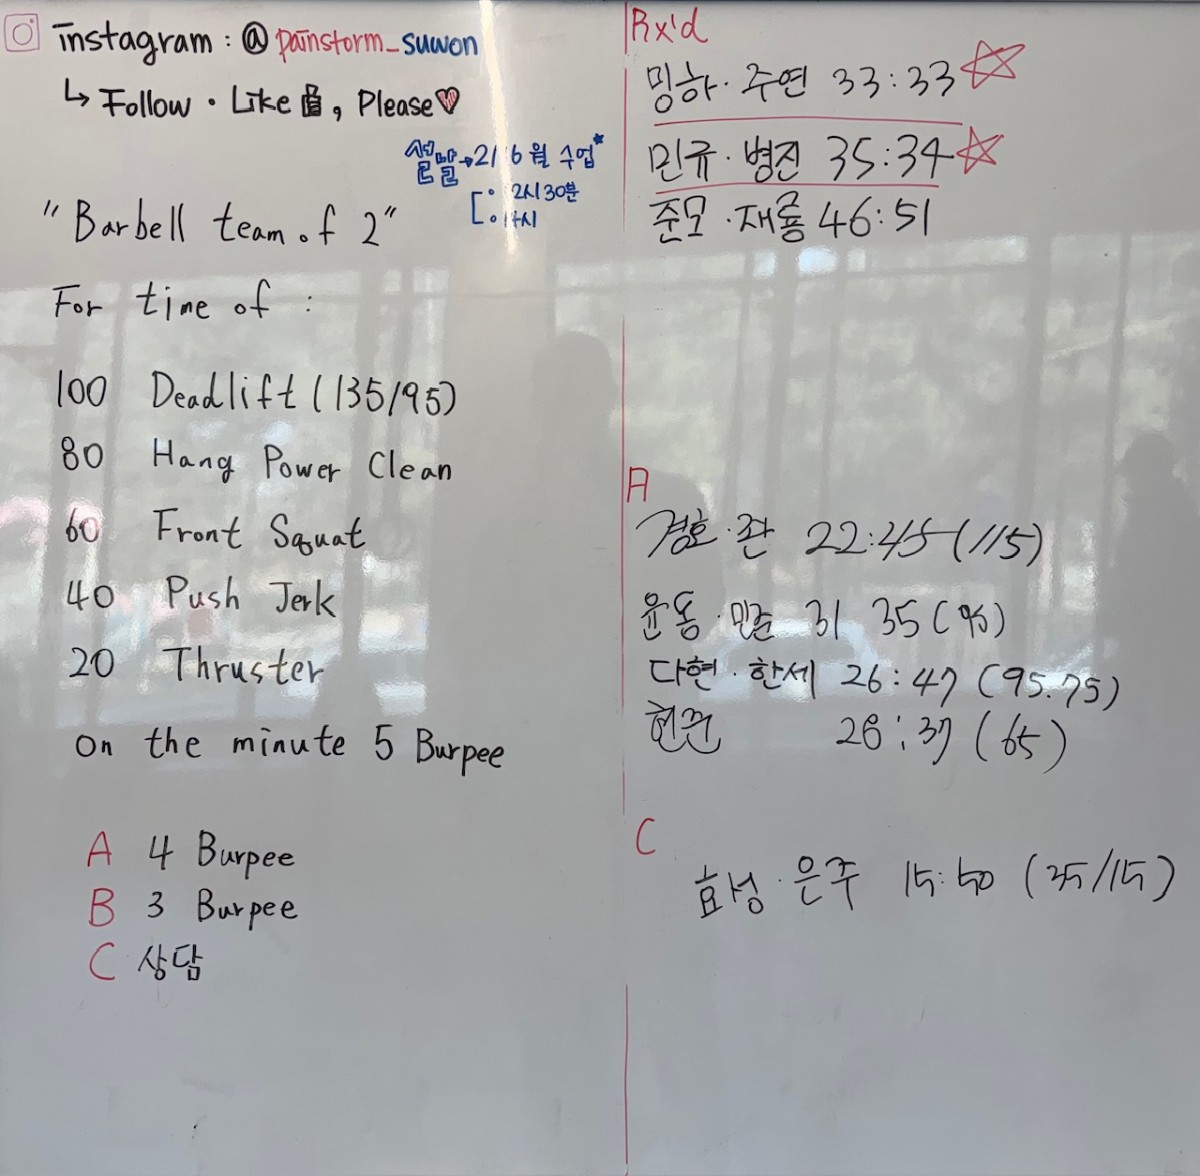 instagram : @painstorm_suwon
↳ Follow · Like, Please♡
설날→2/16 월 수업*
2시30분
4시
"Barbell team of 2"
For time of :
100 Deadlift (135/95)
80 Hang Power Clean
60 Front Squat
40 Push Jerk
20 Thruster
on the minute 5 Burpee
A 4 Burpee
B 3 Burpee
C 상담
Rx'd
밍하·주연 33:33☆
민규·병진 35:34☆
준모·재룡 46:51
A
경호·관 22:45 (115)
윤동·민준 31 35 (95)
다현·한세 26:47 (95.75)
현준 28:37 (65)
C
효성·은주 15:50 (35/15)